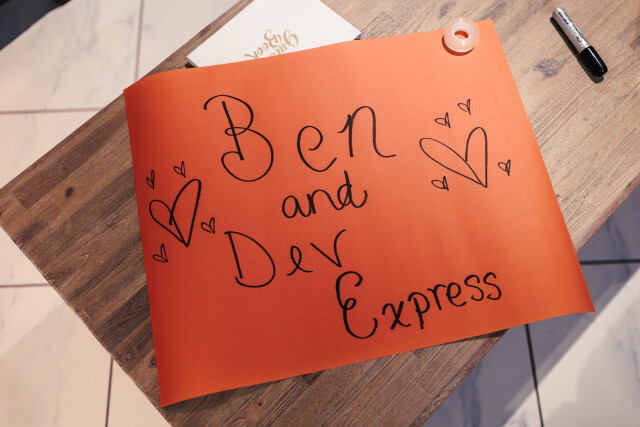 Guest
Book
Ben
and
Dev
Express